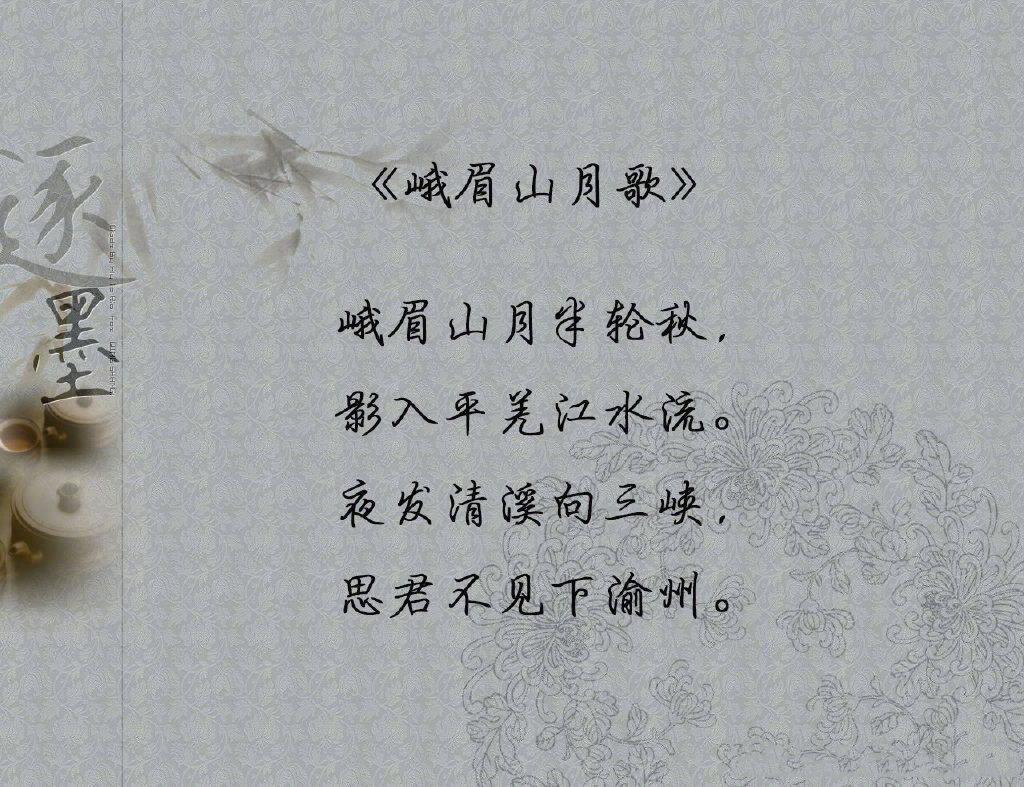 《峨眉山月歌》
峨眉山月半轮秋，
影入平羌江水流。
夜发清溪向三峡，
思君不见下渝州。
逐墨